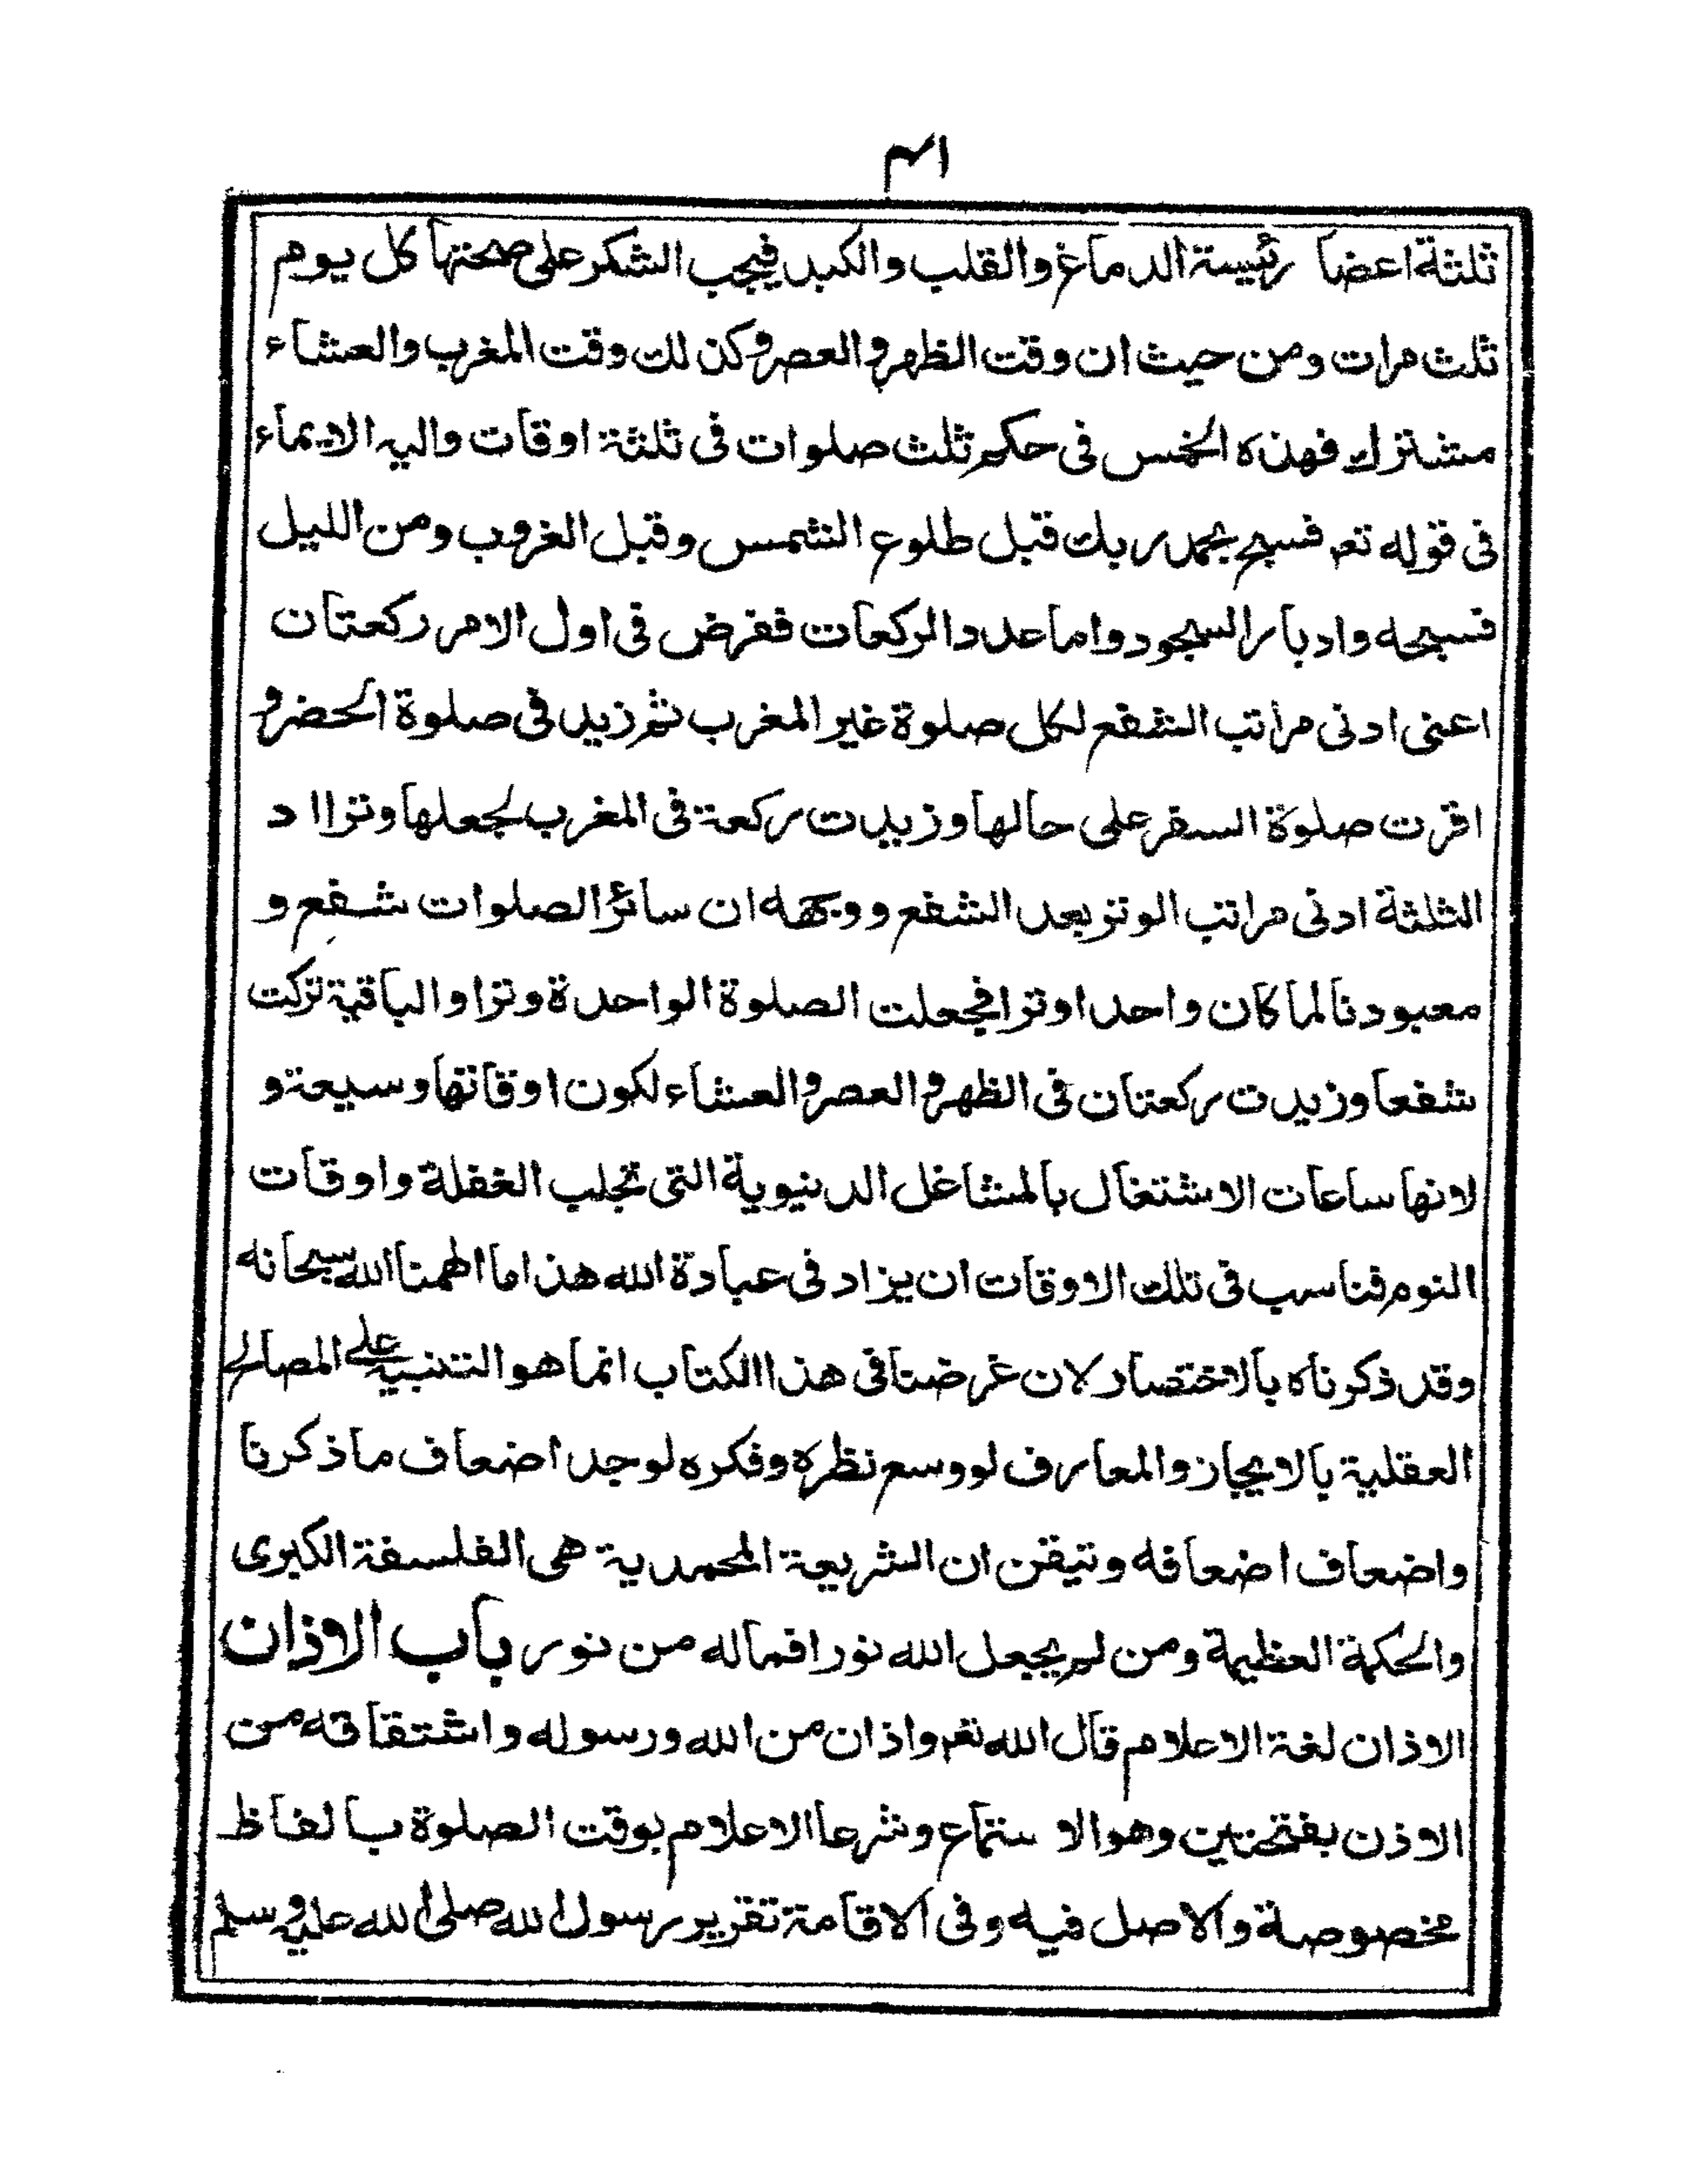 ثلثة اعضا رئيسة الدماغ والقلب والكبد فيجب الشكر على صحتها كل يوم
ثلث مرات ومن حيث ان وقت الظهر والعصر وكذلك وقت المغرب والعشاء
مشترك فهذه الخمس فى حكم ثلث صلوات فى ثلثة اوقات واليه الايماء
فى قوله تعم فسبح بحمد ربك قبل طلوع الشمس وقبل الغروب ومن الليل
فسبحه وادبار السجود واما عدد الركعات ففرض فى اول الامر ركعتان
اعنى ادنى مراتب الشفع لكل صلوة غير المغرب ثم زيد فى صلوة الحضر و
اقرت صلوة السفر على حالها وزيدت ركعة فى المغرب لجعلها وترا اد
الثلثة ادنى مراتب الوتر بعد الشفع ووجهه ان سائر الصلوات شفع و
معبودنا لما كان واحدا وترا فجعلت الصلوة الواحدة وترا والباقية تركت
شفعا وزيدت ركعتان فى الظهر والعصر والعشاء لكون اوقاتها وسيعة و
لانها ساعات الاشتغال بالمشاغل الدنيوية التى تجلب الغفلة واوقات
النوم فناسب فى تلك الاوقات ان يزاد فى عبادة الله هذا ما الهمنا الله سبحانه
وقد ذكرناه بالاختصار لان غرضنا فى هذا الكتاب انما هو التنبيه على المصالح
العقلية بالايجاز والمعارف لو وسع نظره وفكره لوجد اضعاف ما ذكرنا
واضعاف اضعافه وتيقن ان الشريعة المحمدية هى الفلسفة الكبرى
والحكمة العظيمة ومن لم يجعل الله نورا فماله من نور باب الاذان
الاذان لغة الاعلام قال الله تعم واذان من الله ورسوله واشتقاقه من
الاذن بفتحتين وهو الاستماع وشرعا الاعلام بوقت الصلوة بالفاظ
مخصوصة والاصل فيه وفى الاقامة تقرير رسول الله صلى الله عليه وسلم